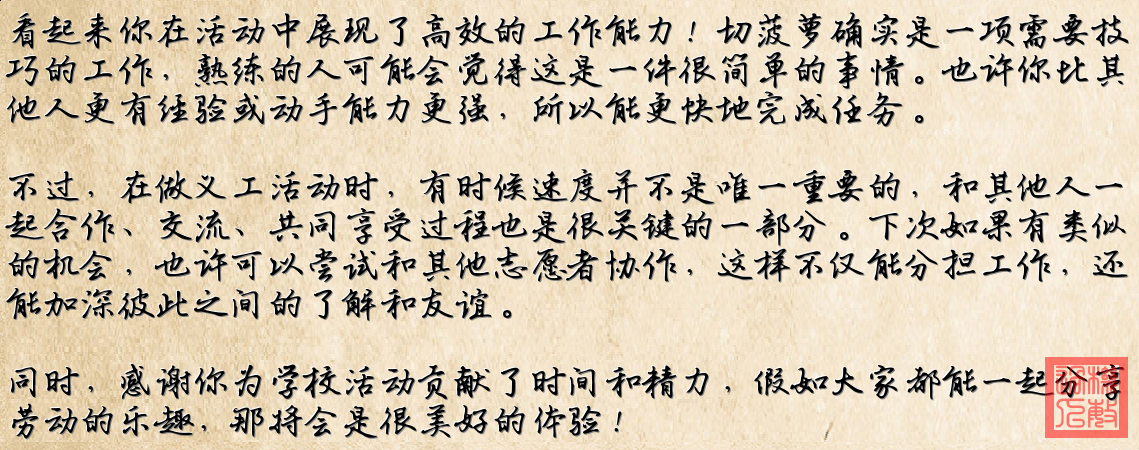 看起来你在活动中展现了高效的工作能力！切菠萝确实是一项需要技
巧的工作，熟练的人可能会觉得这是一件很简单的事情。也许你比其
他人更有经验或动手能力更强，所以能更快地完成任务。
不过，在做义工活动时，有时候速度并不是唯一重要的，和其他人一
起合作、交流、共同享受过程也是很关键的一部分。下次如果有类似
的机会，也许可以尝试和其他志愿者协作，这样不仅能分担工作，还
能加深彼此之间的了解和友谊。
同时，感谢你为学校活动贡献了时间和精力，假如大家都能一起分享
劳动的乐趣，那将会是很美好的体验！